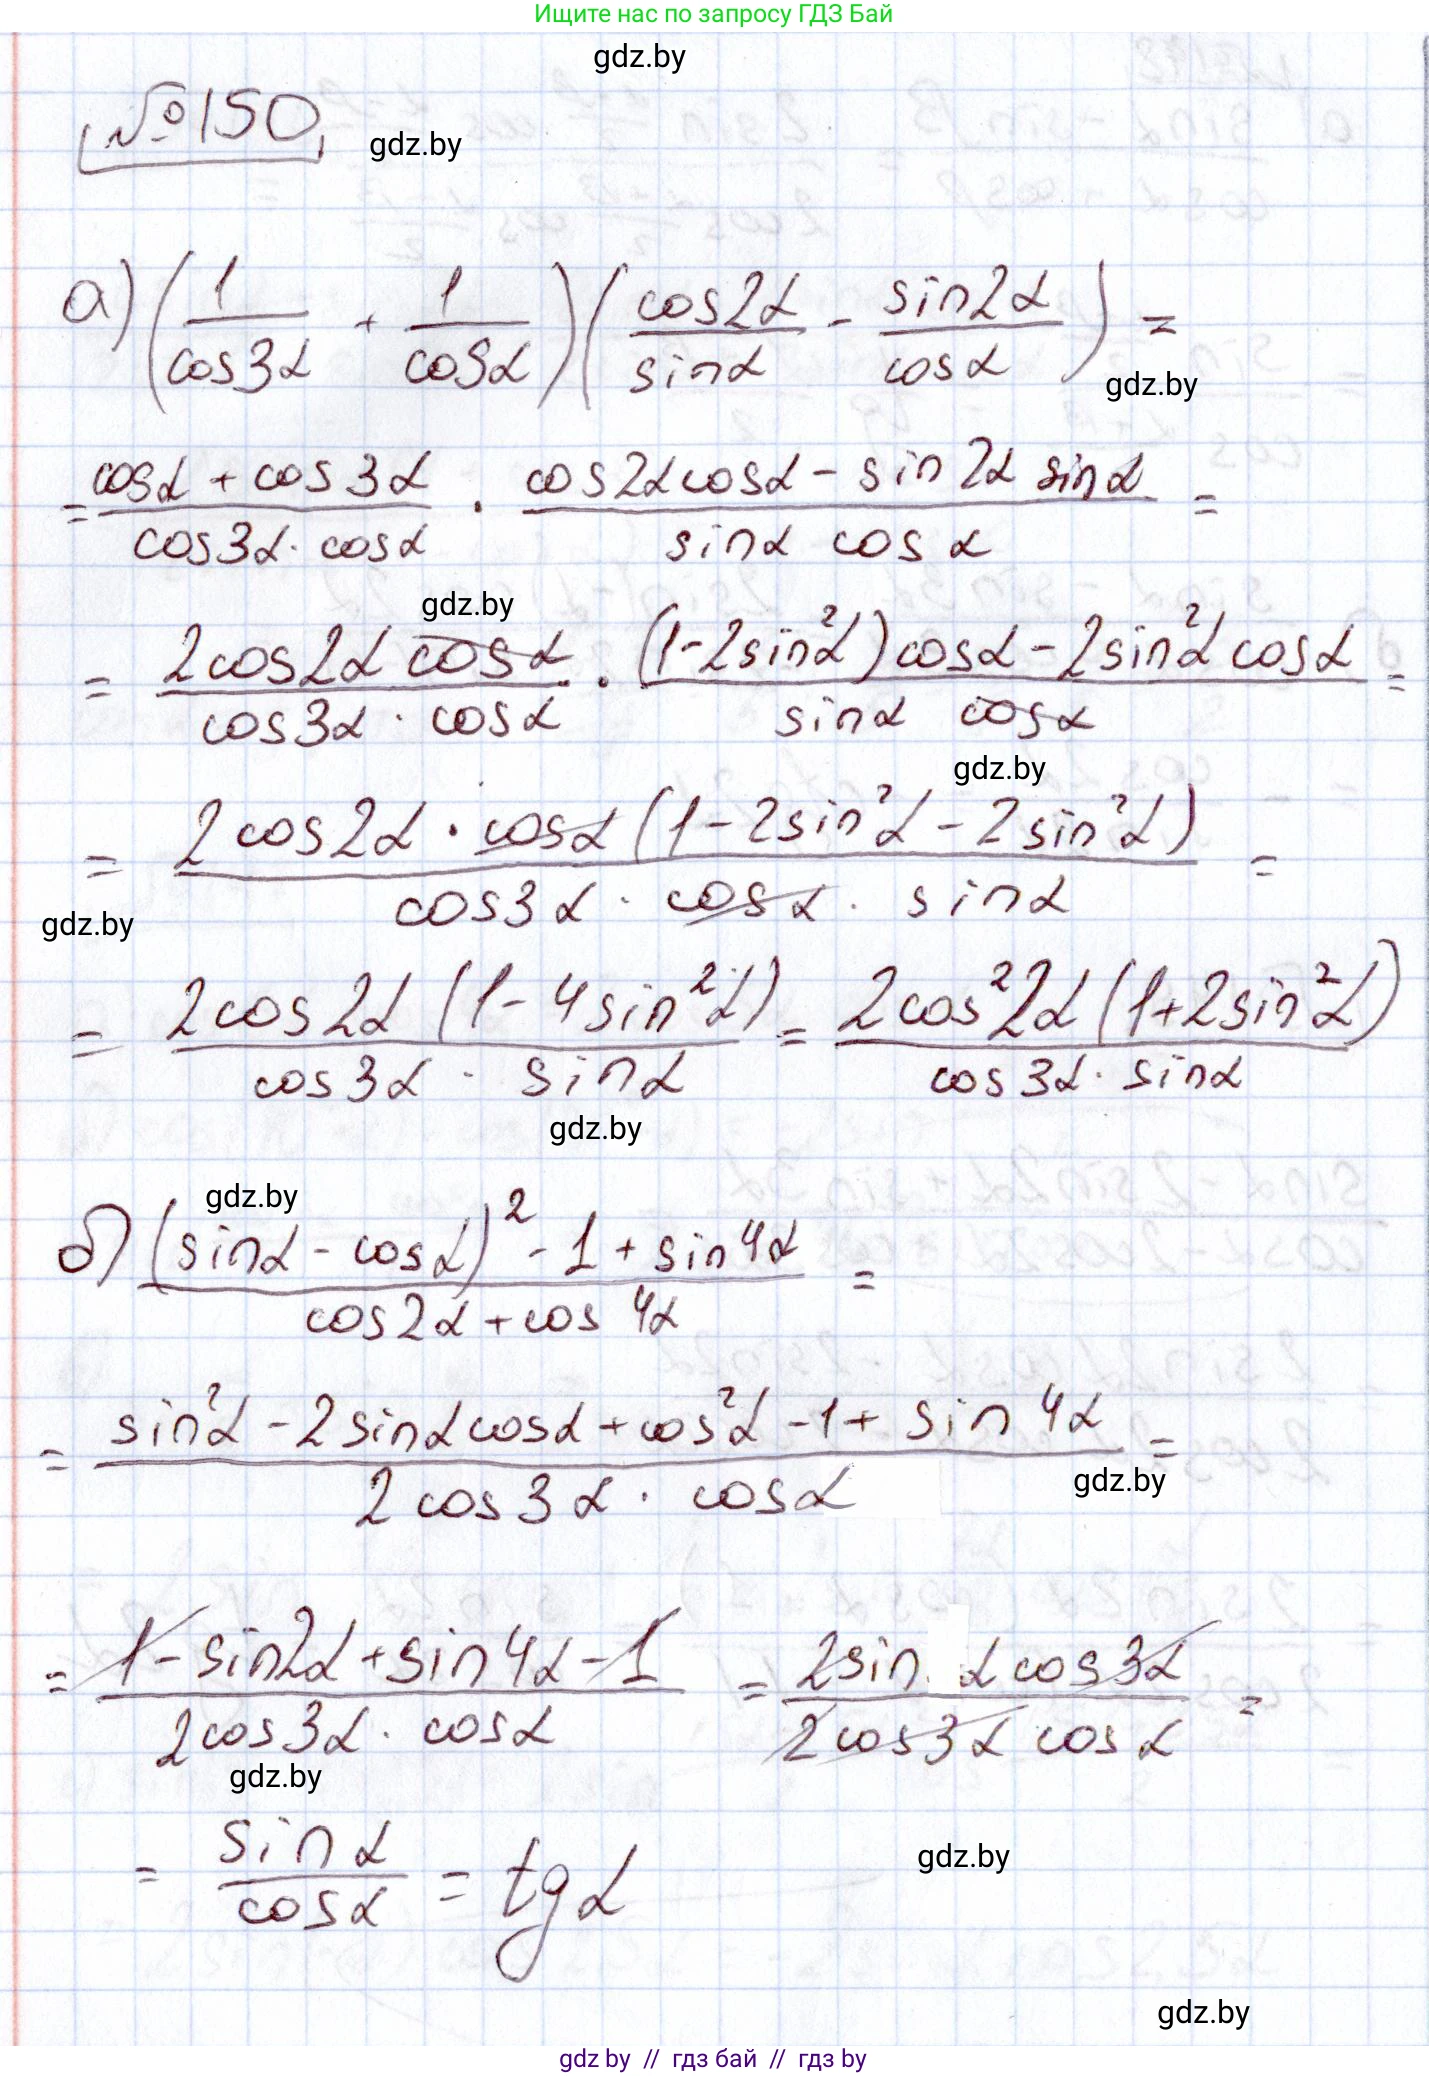 Ищите нас по запросу ГДЗ Бай
gdz.by
№150
gdz.by
а) (1/cos3α + 1/cosα)(cos2α/sinα - sin2α/cosα) =
gdz.by
= (cosα + cos3α)/(cos3α · cosα) · (cos2αcosα - sin2α sinα)/(sinα cosα) =
gdz.by
= (2cos2α cosα)/(cos3α · cosα) · ((1-2sin²α)cosα - 2sin²α cosα)/(sinα cosα) =
gdz.by
= (2cos2α · cosα(1-2sin²α - 2sin²α))/(cos3α · cosα · sinα) =
gdz.by
= (2cos2α (1-4sin²α))/(cos3α · sinα) = (2cos²2α(1+2sin²α))/(cos3α · sinα)
gdz.by
gdz.by
б) ((sinα - cosα)² - 1 + sin4α)/(cos2α + cos4α) =
= (sin²α - 2sinαcosα + cos²α - 1 + sin4α)/(2cos3α · cosα) =
gdz.by
= (1 - sin2α + sin4α - 1)/(2cos3α · cosα) = (2sin α cos3α)/(2cos3α cosα) =
gdz.by
= sinα/cosα = tgα
gdz.by
gdz.by
gdz by // гдз бай // гдз by